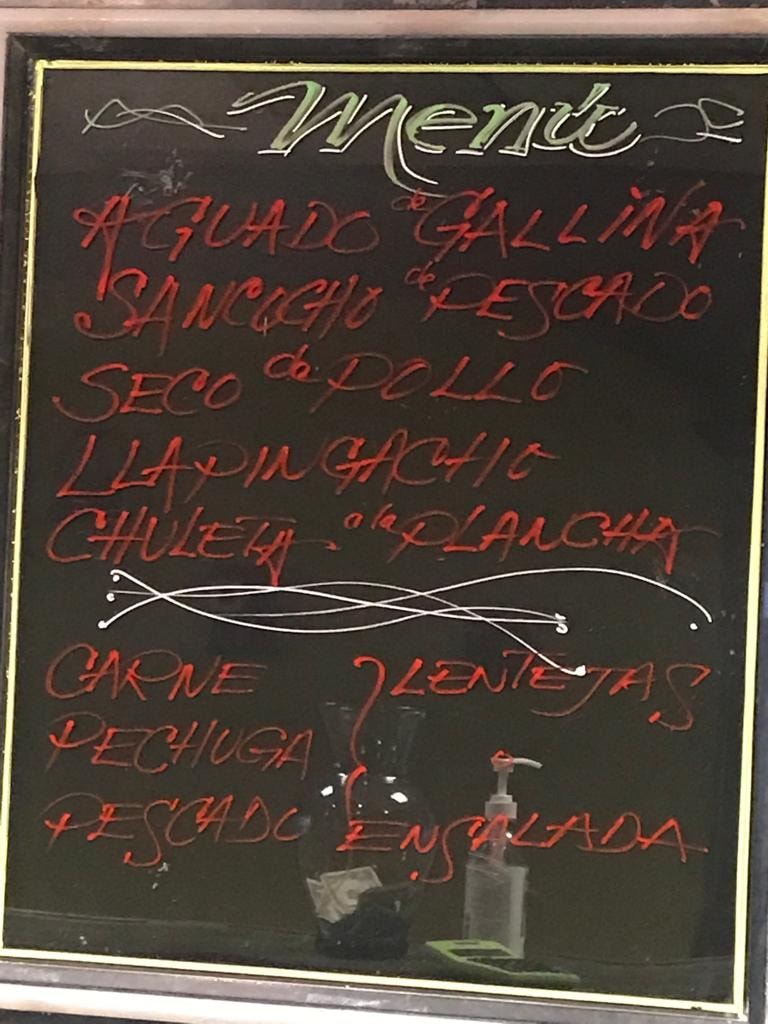 Menú
AGUADO de GALLINA
SANCOCHO de PESCADO
SECO de POLLO
LLAPINGACHO
CHULETA a la PLANCHA
CARNE LENTEJAS
PECHUGA
PESCADO ENSALADA